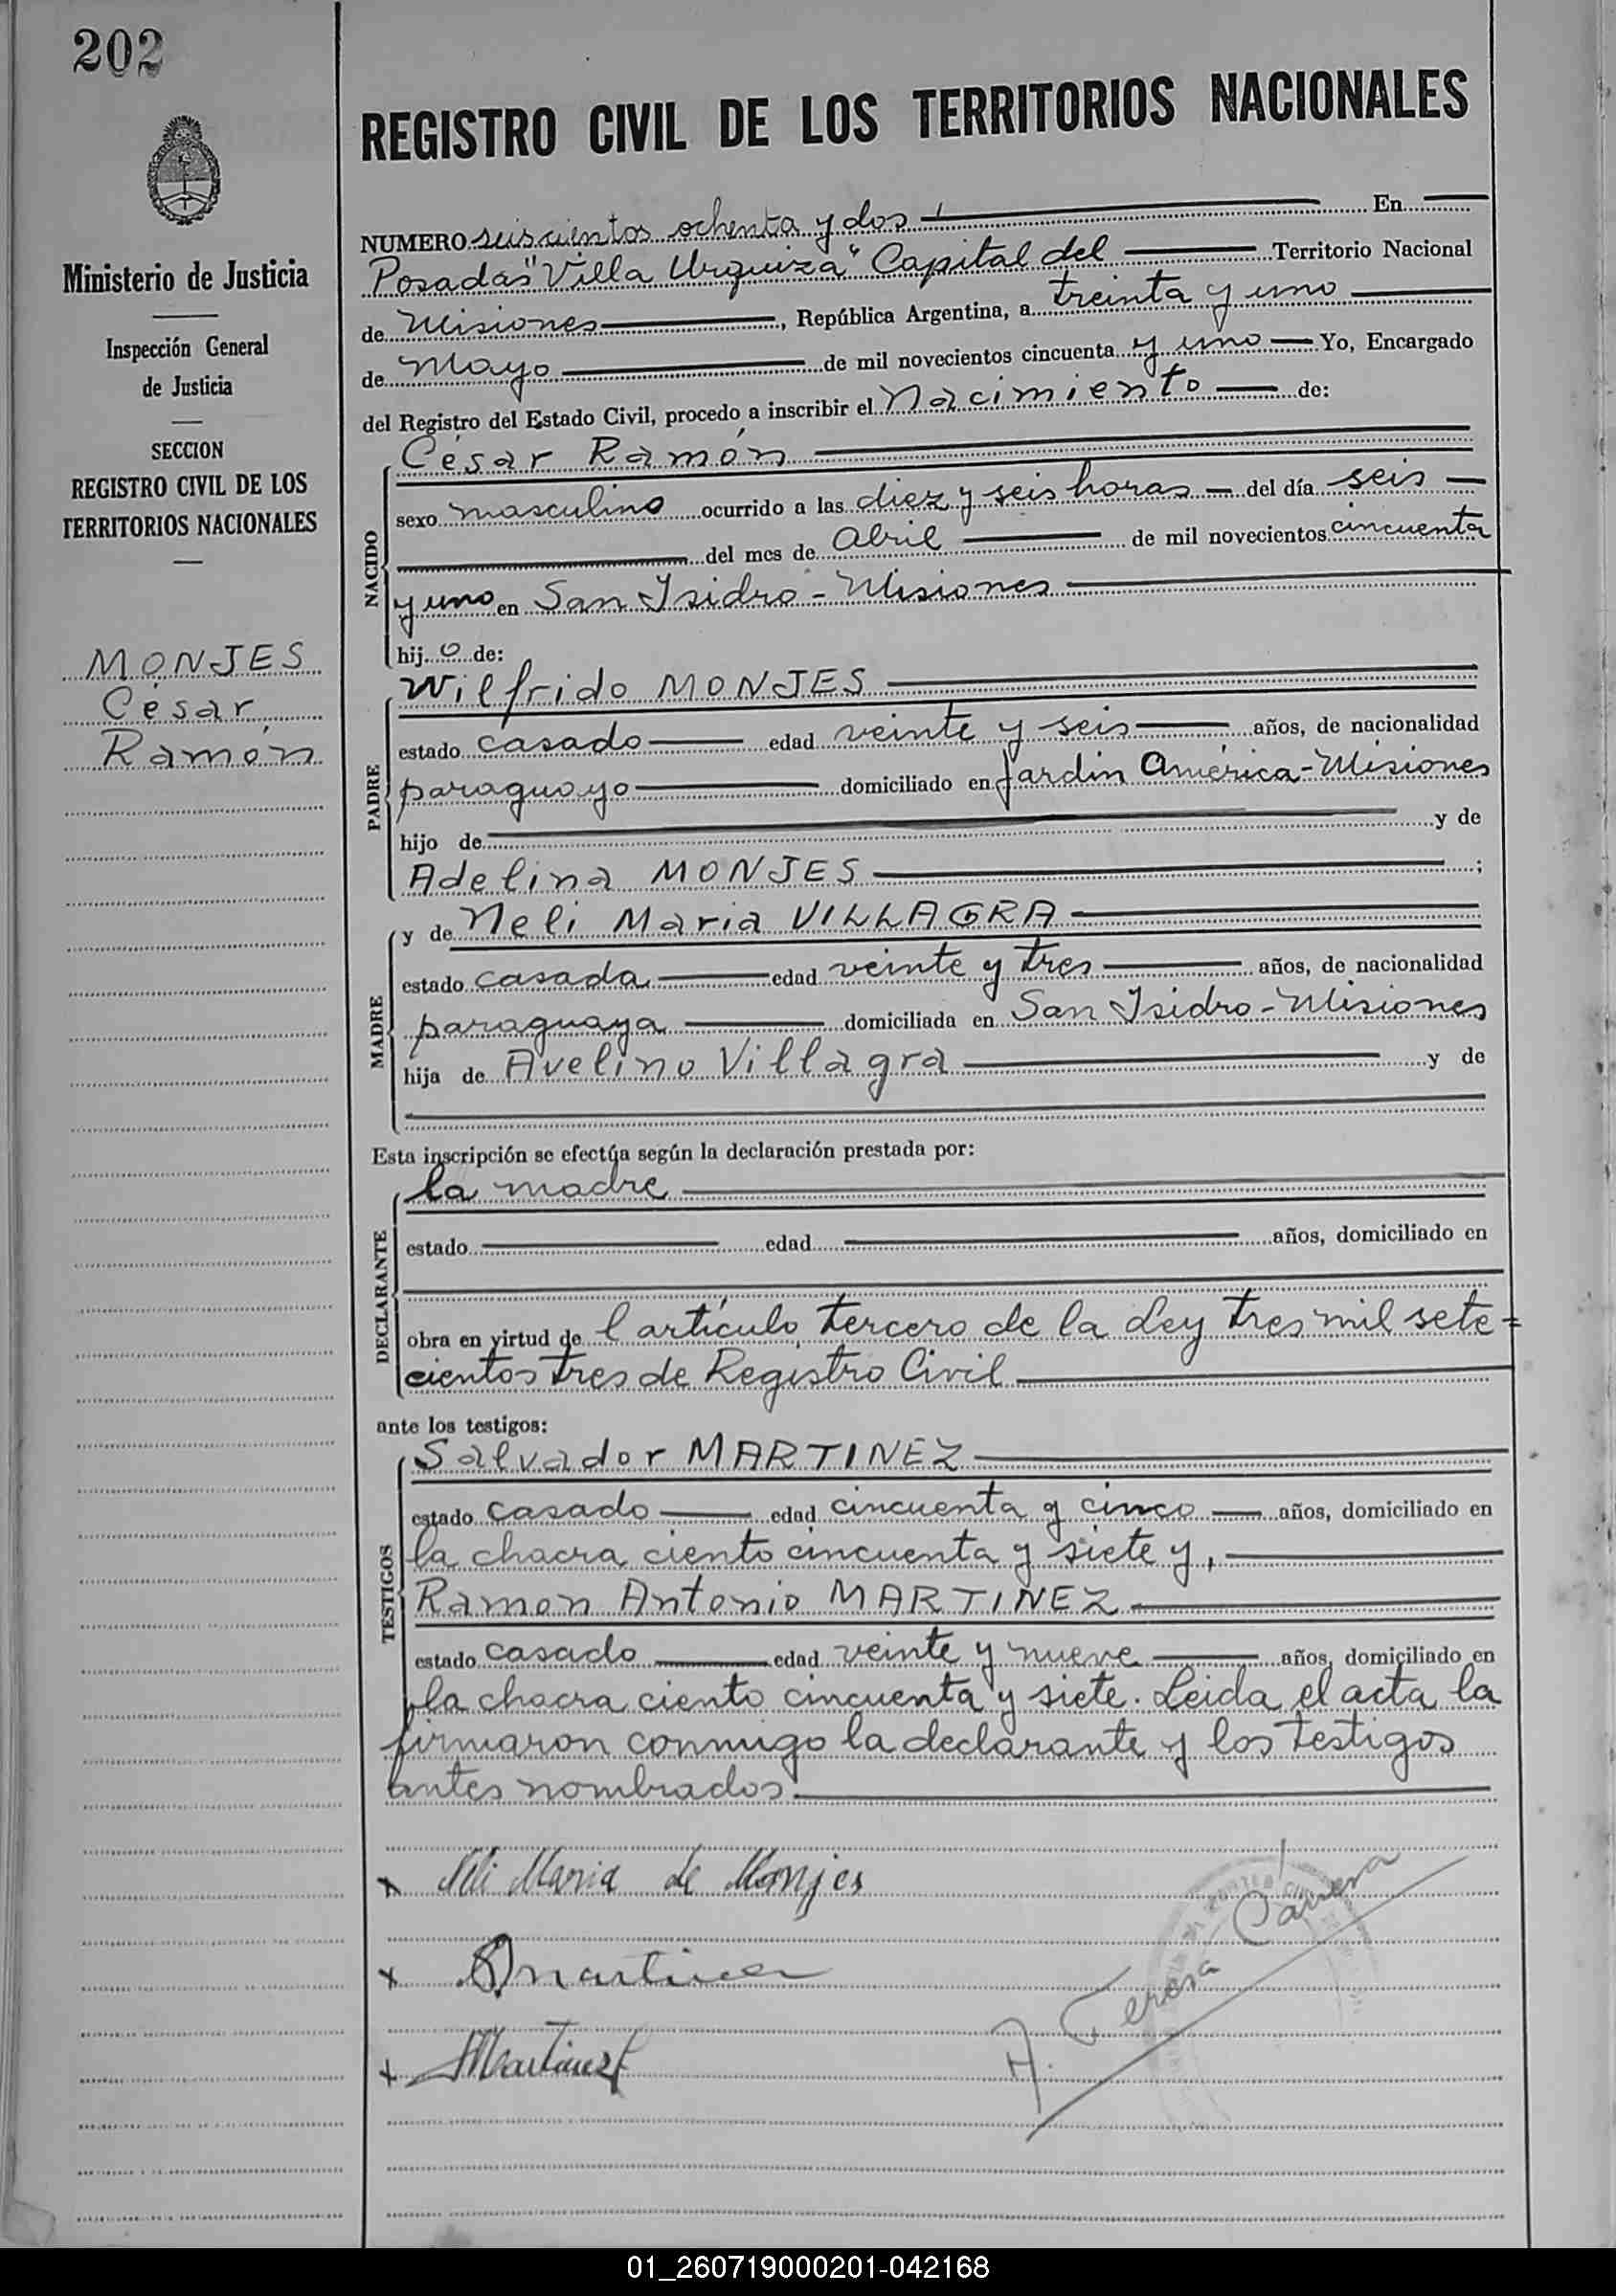 202
Ministerio de Justicia
Inspección General
de Justicia
SECCION
REGISTRO CIVIL DE LOS
TERRITORIOS NACIONALES
MONJES
César
Ramón
REGISTRO CIVIL DE LOS TERRITORIOS NACIONALES
NUMERO seiscientos ochenta y dos En
Posadas "Villa Urquiza" Capital del Territorio Nacional
de Misiones, República Argentina, a treinta y uno
de Mayo de mil novecientos cincuenta y uno Yo, Encargado
del Registro del Estado Civil, procedo a inscribir el Nacimiento de:
NACIDO
César Ramón
sexo masculino ocurrido a las diez y seis horas del día seis
del mes de Abril de mil novecientos cincuenta
y uno en San Isidro - Misiones
hij o de:
PADRE
Wilfrido MONJES
estado casado edad veinte y seis años, de nacionalidad
paraguayo domiciliado en Jardín América - Misiones
hijo de y de
Adelina MONJES ;
MADRE
y de Neli Maria VILLAGRA
estado casada edad veinte y tres años, de nacionalidad
paraguaya domiciliada en San Isidro - Misiones
hija de Avelino Villagra y de
Esta inscripción se efectúa según la declaración prestada por:
DECLARANTE
la madre
estado edad años, domiciliado en
obra en virtud de l artículo tercero de la Ley tres mil sete=
cientos tres de Registro Civil
ante los testigos:
TESTIGOS
Salvador MARTINEZ
estado casado edad cincuenta y cinco años, domiciliado en
la chacra ciento cincuenta y siete y,
Ramon Antonio MARTINEZ
estado casado edad veinte y nueve años, domiciliado en
la chacra ciento cincuenta y siete. Leida el acta la
firmaron conmigo la declarante y los testigos
antes nombrados.
x Neli Maria de Monjes
x Martinez
x Martinez
A. Teresa Carrera
01_260719000201-042168